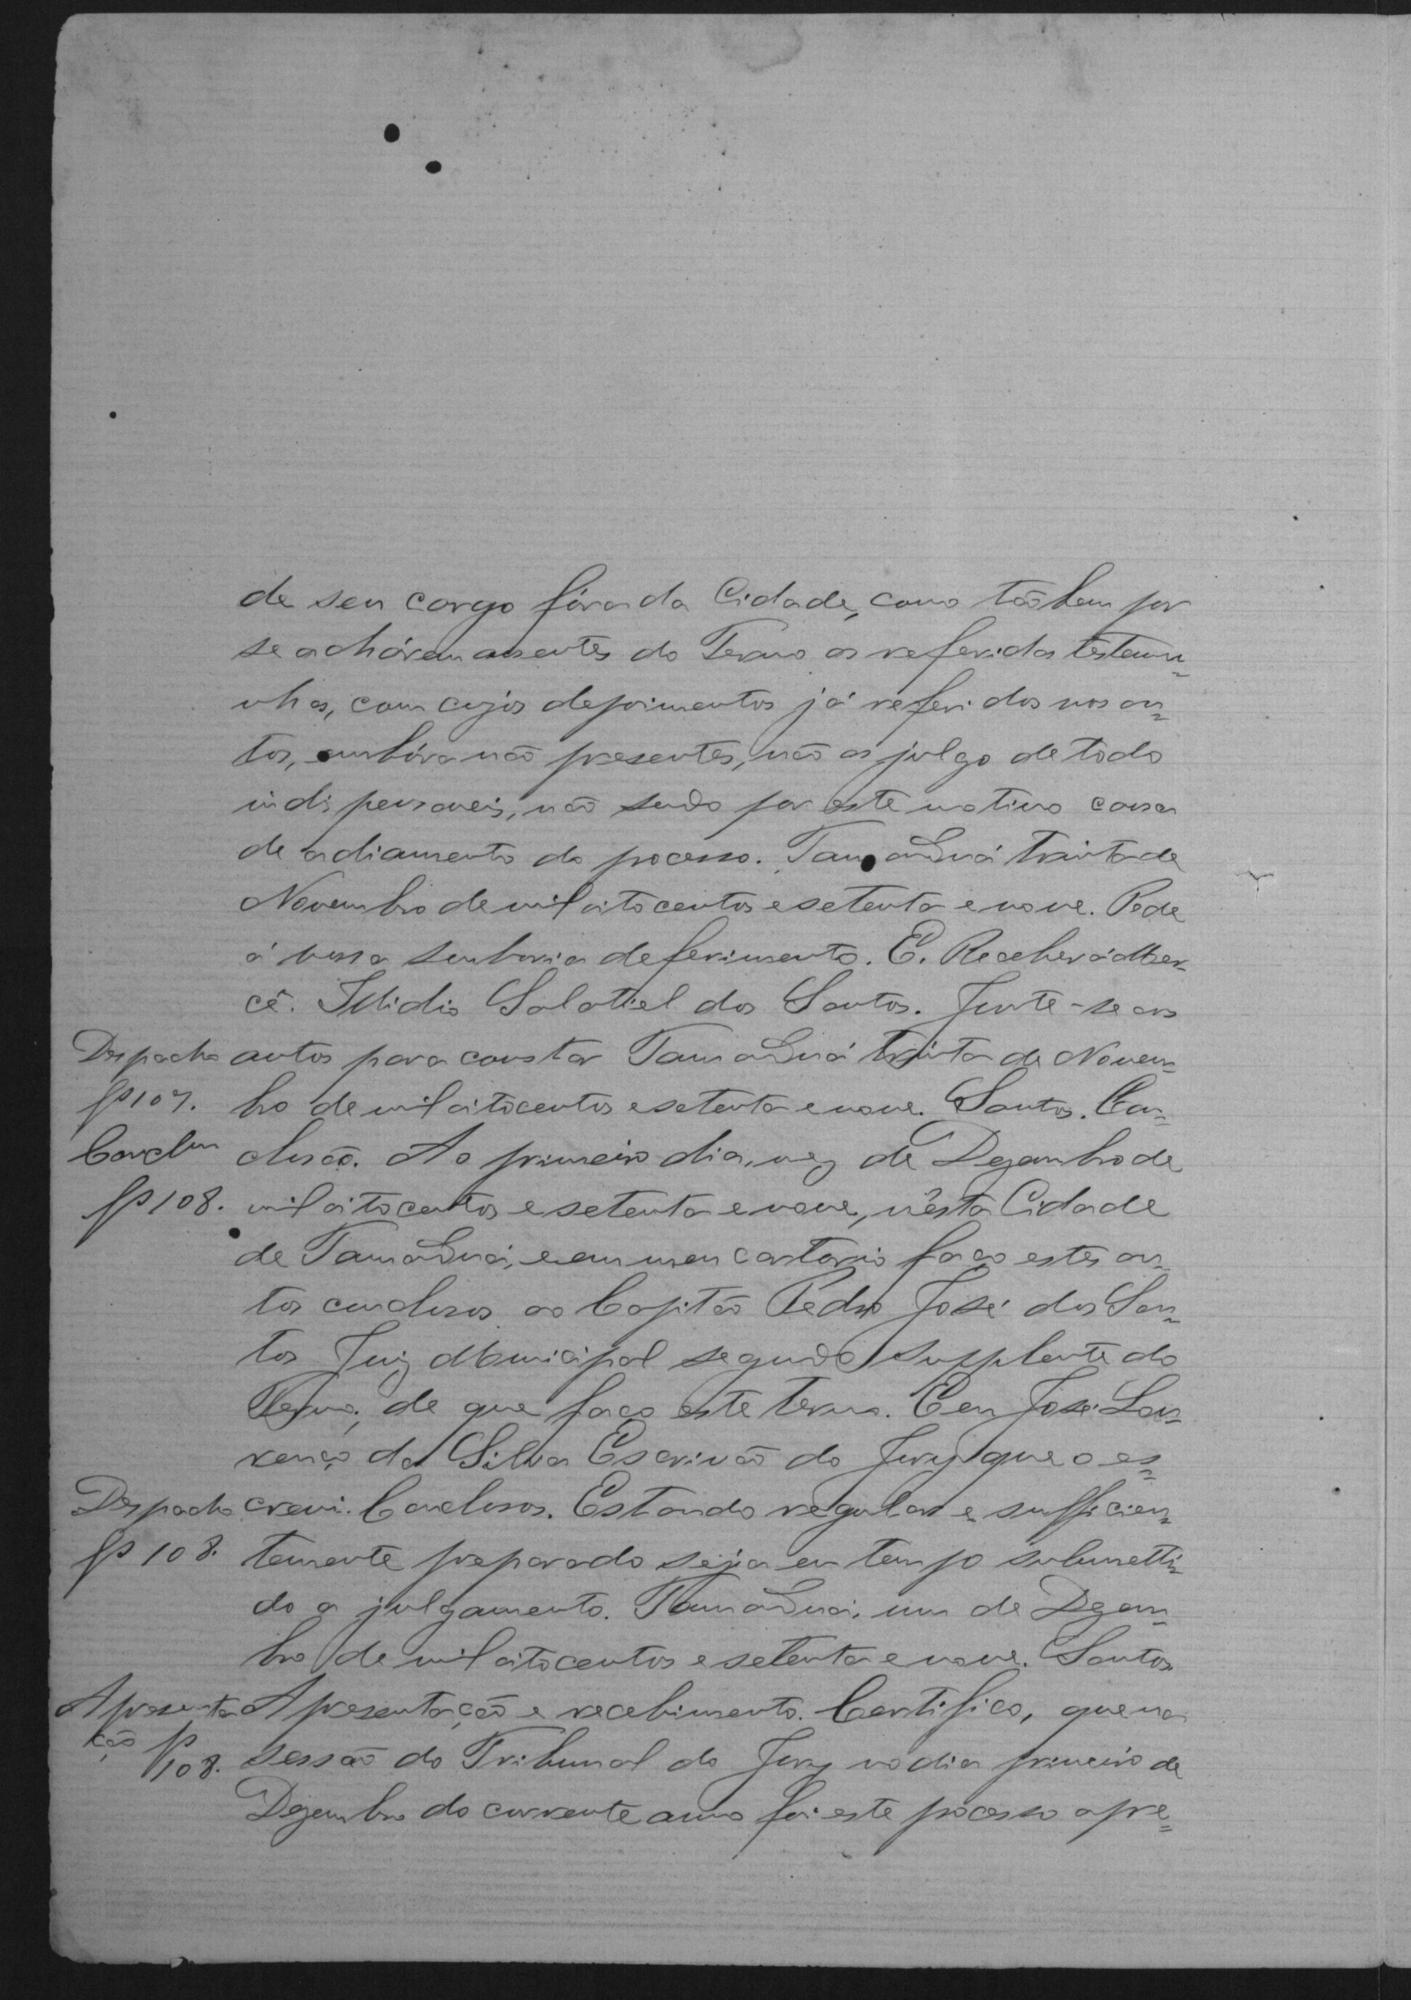 de seu cargo fóra da Cidade, como tão bem por
se achárem ausentes do Termo as referidas testemu=
nhas, com cujos depoimentos já referidos nos au=
tos, embóra não presentes, não as julgo de todo
indispensaveis, não sendo por este motivo causa
de adiamento do processo. Tamanduá trinta de
Novembro de mil oitocentos e setenta e nove. Pede
á vossa senhoria deferimento. E. Receberá Mer=
cê. Illidio Salatiel dos Santos. Junte-se aos
Despacho autos para constar Tamanduá trinta de Novem=
fl 107. bro de mil oitocentos e setenta e nove. Santos. Con=
Conclm clusão. Ao primeiro dia, mez de Dezembro de
fl 108. mil oitocentos e setenta e nove, nésta Cidade
de Tamanduá, e em meu cartorio faço estes au=
tos conclusos ao Capitão Pedro José dos San=
tos Juiz Municipal segundo supplente do
Termo, de que faço este termo. E eu José Lou=
renço da Silva Escrivão do Jury que o es=
Despacho crevi. Conclusos. Estando regular e sufficien=
fl 108. temente preparado seja em tempo submetti=
do a julgamento. Tamanduá, um de Dezem=
bro de mil oitocentos e setenta e nove. Santos
Apresenta Apresentação e recebimento. Certifico, que na
ção fl 108. sessão do Tribunal do Jury no dia primeiro de
Dezembro do currente anno foi este processo apre=